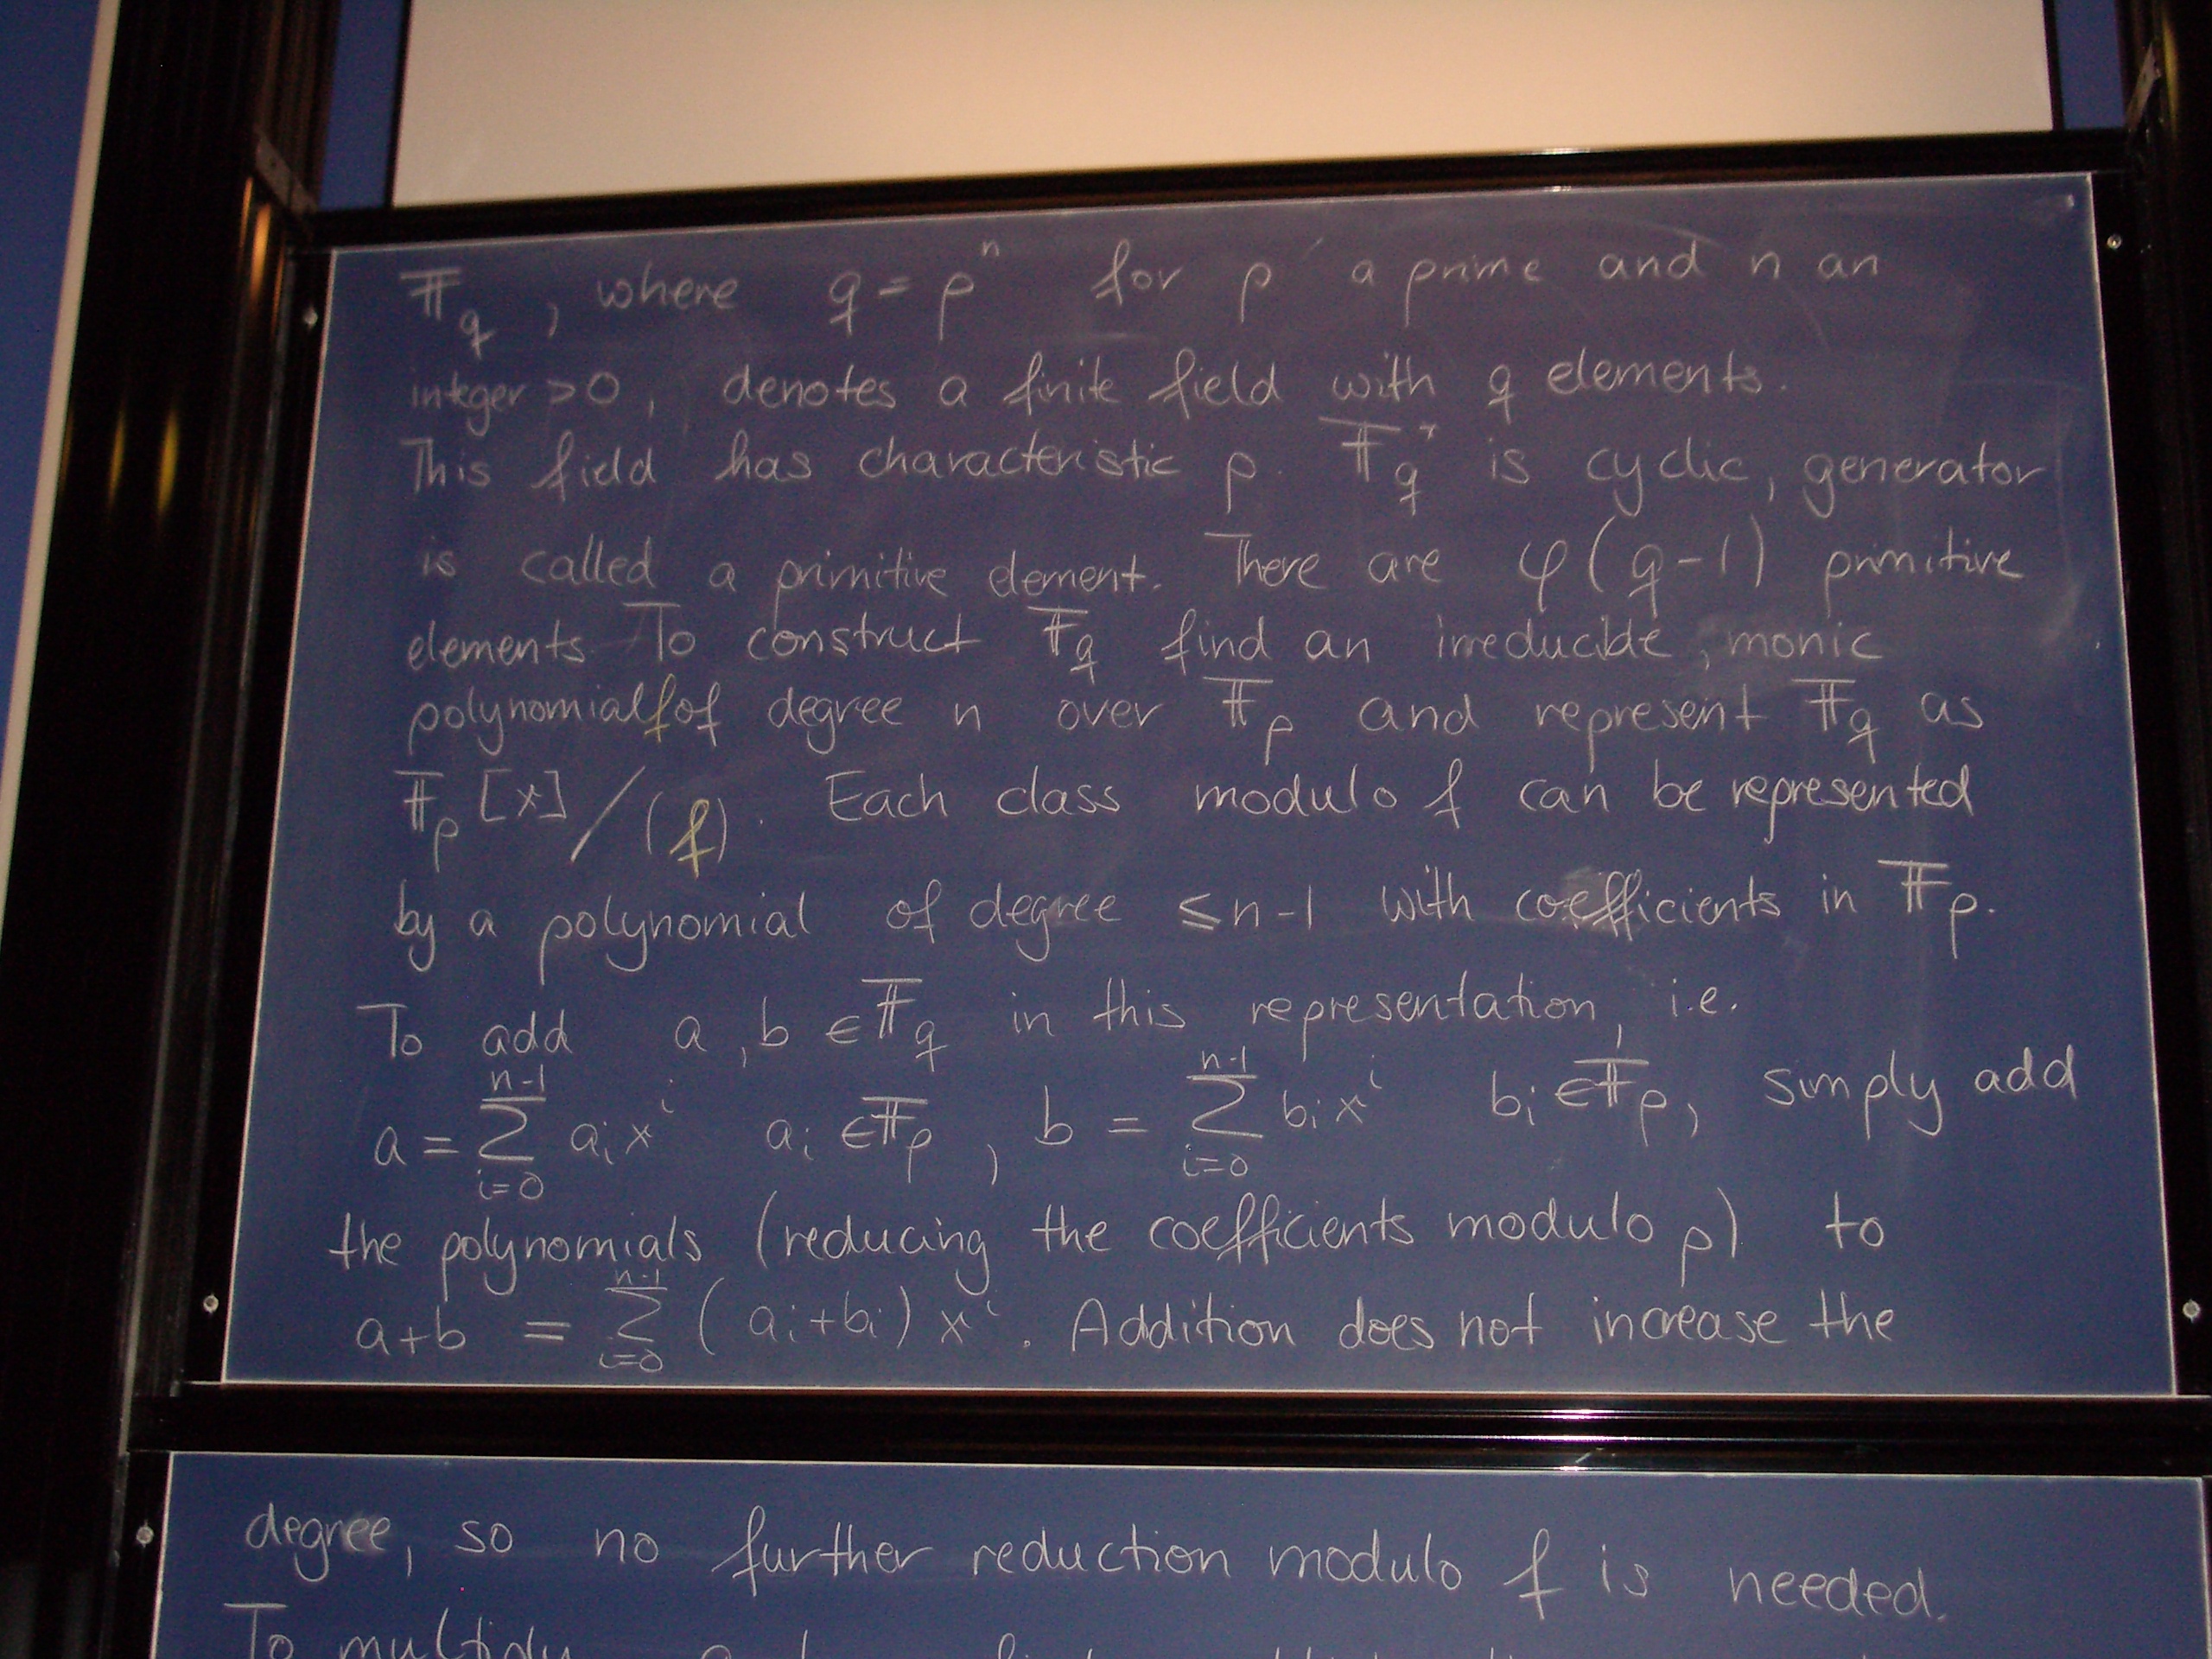 𝔽_q, where q = p^n for p a prime and n an
integer >0, denotes a finite field with q elements.
This field has characteristic p. 𝔽_q^* is cyclic, generator
is called a primitive element. There are φ(q-1) primitive
elements. To construct 𝔽_q find an irreducible, monic
polynomial f of degree n over 𝔽_p and represent 𝔽_q as
𝔽_p[x]/(f). Each class modulo f can be represented
by a polynomial of degree ≤n-1 with coefficients in 𝔽_p.
To add a, b ∈ 𝔽_q in this representation, i.e.
a = ∑_{i=0}^{n-1} a_i x^i a_i ∈ 𝔽_p, b = ∑_{i=0}^{n-1} b_i x^i b_i ∈ 𝔽_p, simply add
the polynomials (reducing the coefficients modulo p) to
a+b = ∑_{i=0}^{n-1} (a_i+b_i) x^i. Addition does not increase the
degree, so no further reduction modulo f is needed.
To multiply